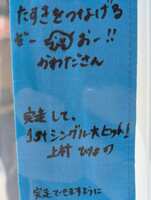 たすきをつなげる
ぞー おー!!
がわださん
完走して、
1stシングル大ヒット!
上村 ひなの
完走できますように